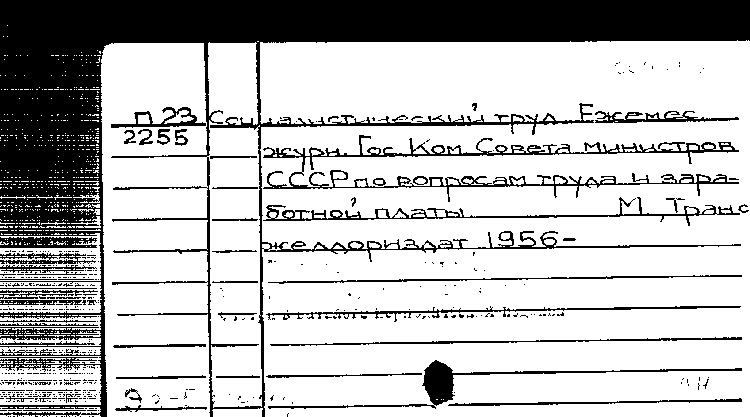 П 23 Социалистический труд. Ежемес.
2255
журн. Гос. Ком. Совета министров
СССР по вопросам труда и зара-
ботной платы. М., Транс
желдориздат, 1956-